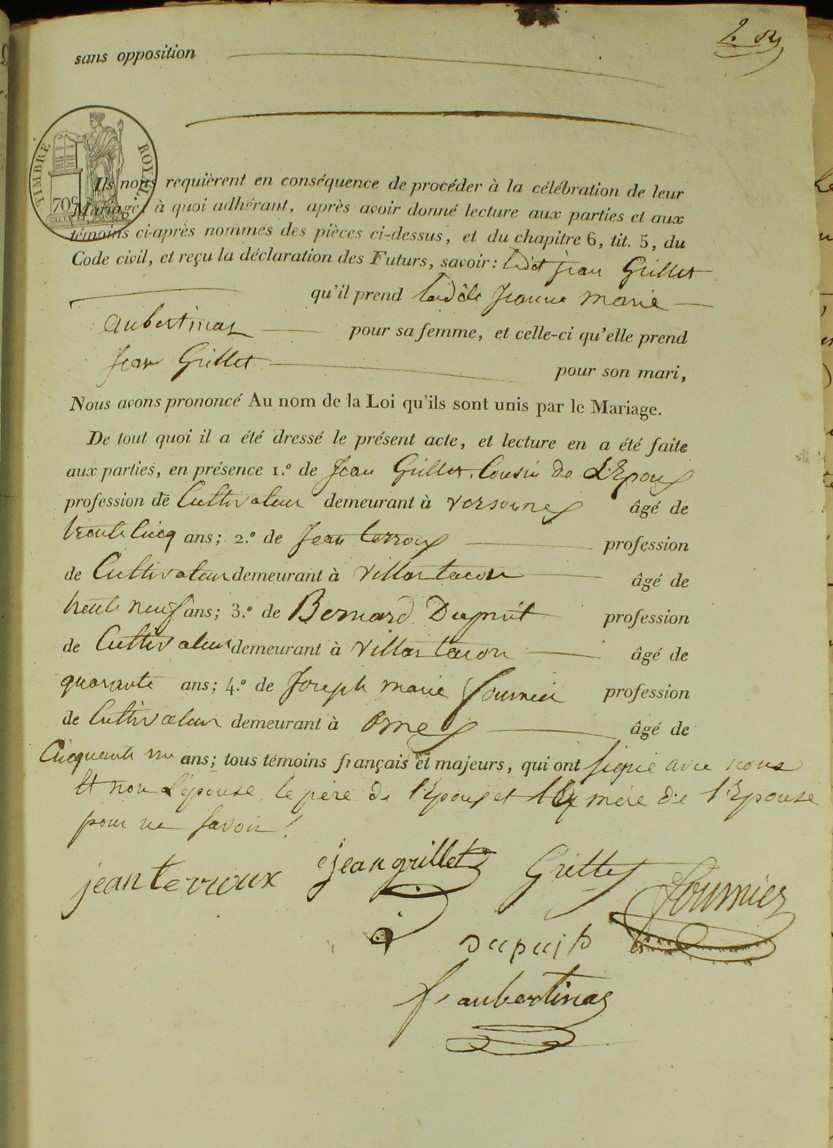 sans opposition
TIMBRE ROYAL
70c
Ils nous requièrent en conséquence de procéder à la célébration de leur
Mariage; à quoi adhérant, après avoir donné lecture aux parties et aux
témoins ci-après nommés des pièces ci-dessus, et du chapitre 6, tit. 5, du
Code civil, et reçu la déclaration des Futurs, savoir: ledt jean Grillet
qu'il prend Jeanne marie
aubertinas pour sa femme, et celle-ci qu'elle prend
Jean Grillet pour son mari,
Nous avons prononcé Au nom de la Loi qu'ils sont unis par le Mariage.
De tout quoi il a été dressé le présent acte, et lecture en a été faite
aux parties, en présence 1.º de Jean Grillet. Cousin de L'Epoux
profession de Cultivateur demeurant à versonnex âgé de
trente Cincq ans; 2.º de Jean terroux profession
de Cultivateur demeurant à villartacon âgé de
trente neuf ans; 3.º de Bernard Dupuit profession
de Cultivateur demeurant à villartacon âgé de
quarante ans; 4.º de Joseph marie fournier profession
de Cultivateur demeurant à ornex âgé de
Cicquante un ans; tous témoins français et majeurs, qui ont signé avec nous
Et non L'épouse le père de l'Epoux et mère de l'Epouse
pour ne savoir!
jean terroux jean grillet Grillet fournier
dupuits
f. aubertinas